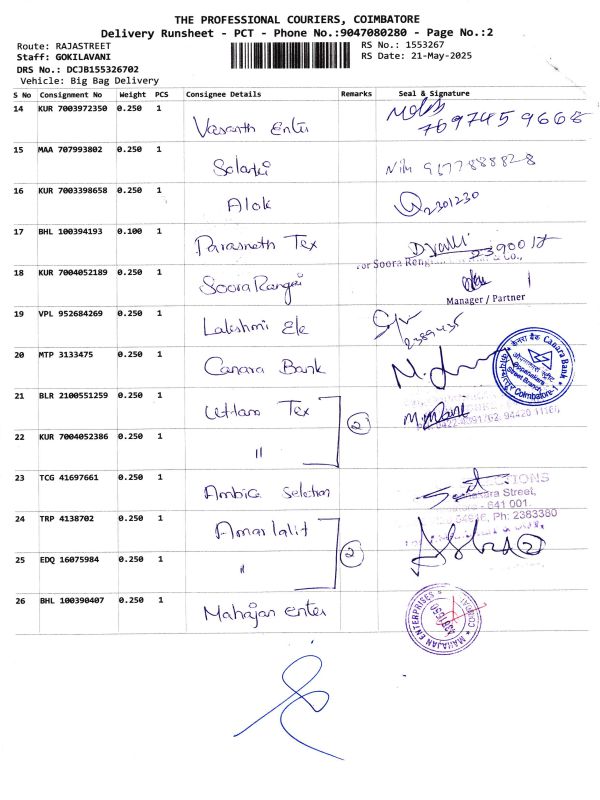 THE PROFESSIONAL COURIERS, COIMBATORE
Delivery Runsheet - PCT - Phone No.:9047080280 - Page No.:2
Route: RAJASTREET
RS No.: 1553267
Staff: GOKILAVANI
RS Date: 21-May-2025
DRS No.: DCJB155326702
Vehicle: Big Bag Delivery
S No Consignment No Weight PCS Consignee Details Remarks Seal & Signature
14 KUR 7003972350 0.250 1 Vasanth Enter 7697459668
15 MAA 707993802 0.250 1 9677888828
16 KUR 7003398658 0.250 1 Alok 2301230
17 BHL 100394193 0.100 1 Parasnath Tex
For Soora
18 KUR 7004052189 0.250 1 Soora Rangai
Manager / Partner
19 VPL 952684269 0.250 1 Lakshmi Ele 2389435
20 MTP 3133475 0.250 1 Canara Bank
केनरा बैंक Canara Bank
Street Branch
Coimbatore-1
21 BLR 2100551259 0.250 1 Uttam Tex 2
22 KUR 7004052386 0.250 1 "
23 TCG 41697661 0.250 1 Ambica Selection
Street,
641 001.
Ph: 2383380
24 TRP 4138702 0.250 1 Amar lalit 2
25 EDQ 16075984 0.250 1 "
26 BHL 100390407 0.250 1 Mahajan Enter
MAHAJAN ENTERPRISES